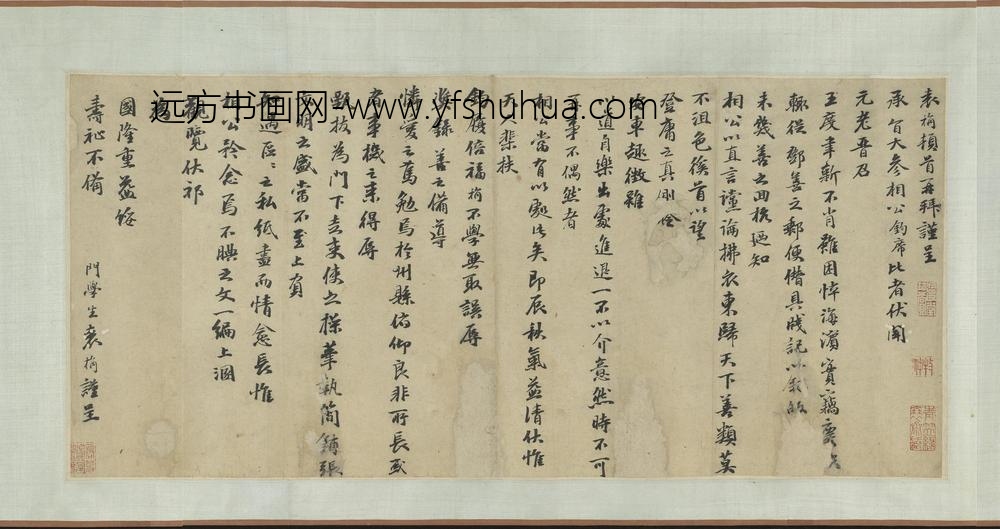 袁桷頓首再拜謹呈
承旨大參相公鈞席比者伏聞
元老晉召
玉度聿新不肖雖困悴海濱實竊
輒從鄞善之郵便僭具牋記以
未幾善之回椟廼知
相公以直言讜論拂衣東歸天下善類莫
不沮色徯首以望
登庸之真
車趣徴雖
道自樂出處進退一不以介意然時不可
事不偶然者
相公當有以處此矣即辰秋氣益清伏惟
棐扶
倍福桷不學無取誤辱
善之備導
憐愛之篤勉焉於州縣俯仰良非所長或
者事機之來得辱
題拔為門下吉士使之操觚執簡鋪張
明之盛當不至上負
區區之私紙盡而情愈長惟
公矜念焉不腆之文一編上溷
觀覽伏祁
國隆重益綏
壽祉不備
門學生袁桷謹呈
远方书画网-www.yfshuhua.com